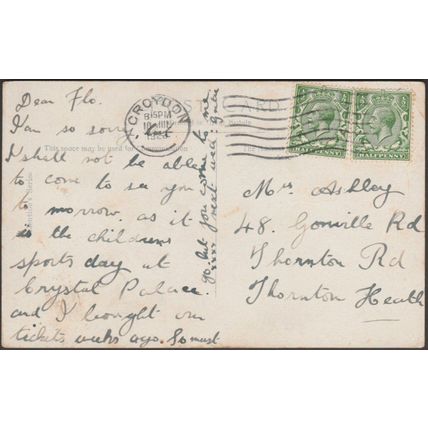 POST CARD
CROYDON
8:15PM
10 JUN
This space may be used for communication
HALFPENNY
HALFPENNY
Dear Flo.
I am so sorry,
I shall not be able
to come to see you
to morrow, as it
is the childrens
sports day at
Crystal Palace.
and I bought our
tickets weeks ago. So must
go, but you come to me
next wed:
Mrs Ashley
48. Gonville Rd
Thornton Rd
Thornton Heath